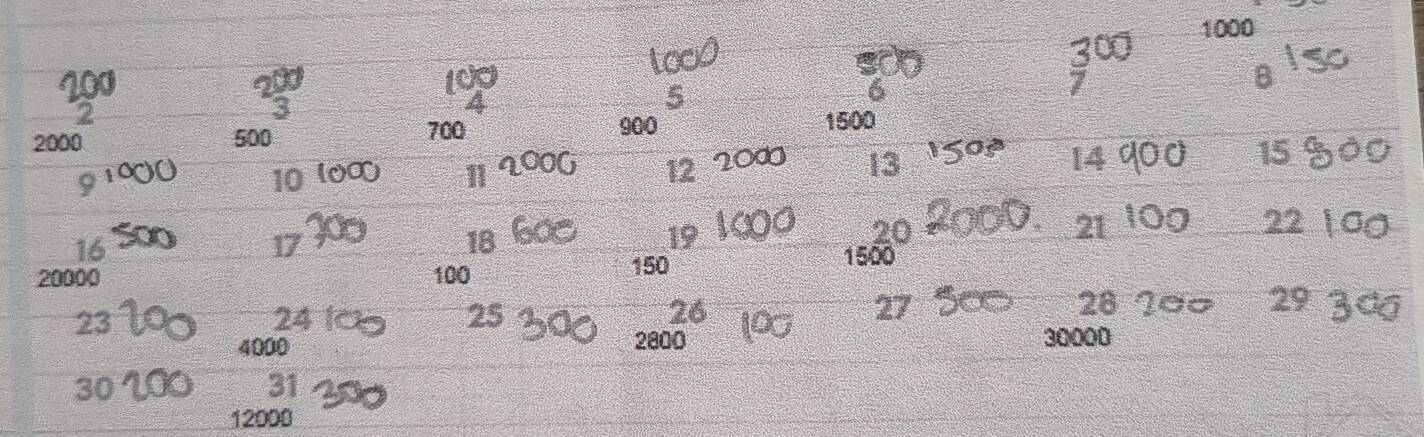 1000
200 200 100 1000 500 300 150
2 3 4 5 6 7 8
2000 500 700 900 1500
9 1000 10 1000 11 2000 12 2000 13 1500 14 900 15 800
16 500 17 300 18 600 19 1000 20 2000. 21 100 22 100
20000 100 150 1500
23 200 24 100 25 300 26 100 27 500 28 200 29 300
4000 2800 30000
30 200 31 300
12000